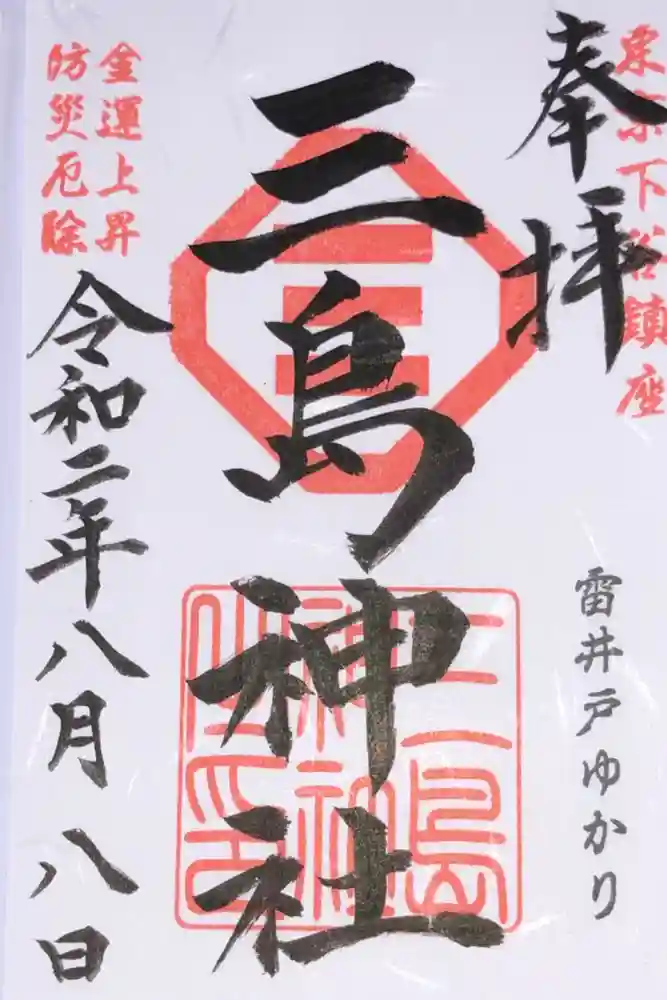 東京下谷鎮座
奉拝
雷井戸ゆかり
三島神社
三島
神社
之印
金運上昇
防災厄除
令和二年八月八日